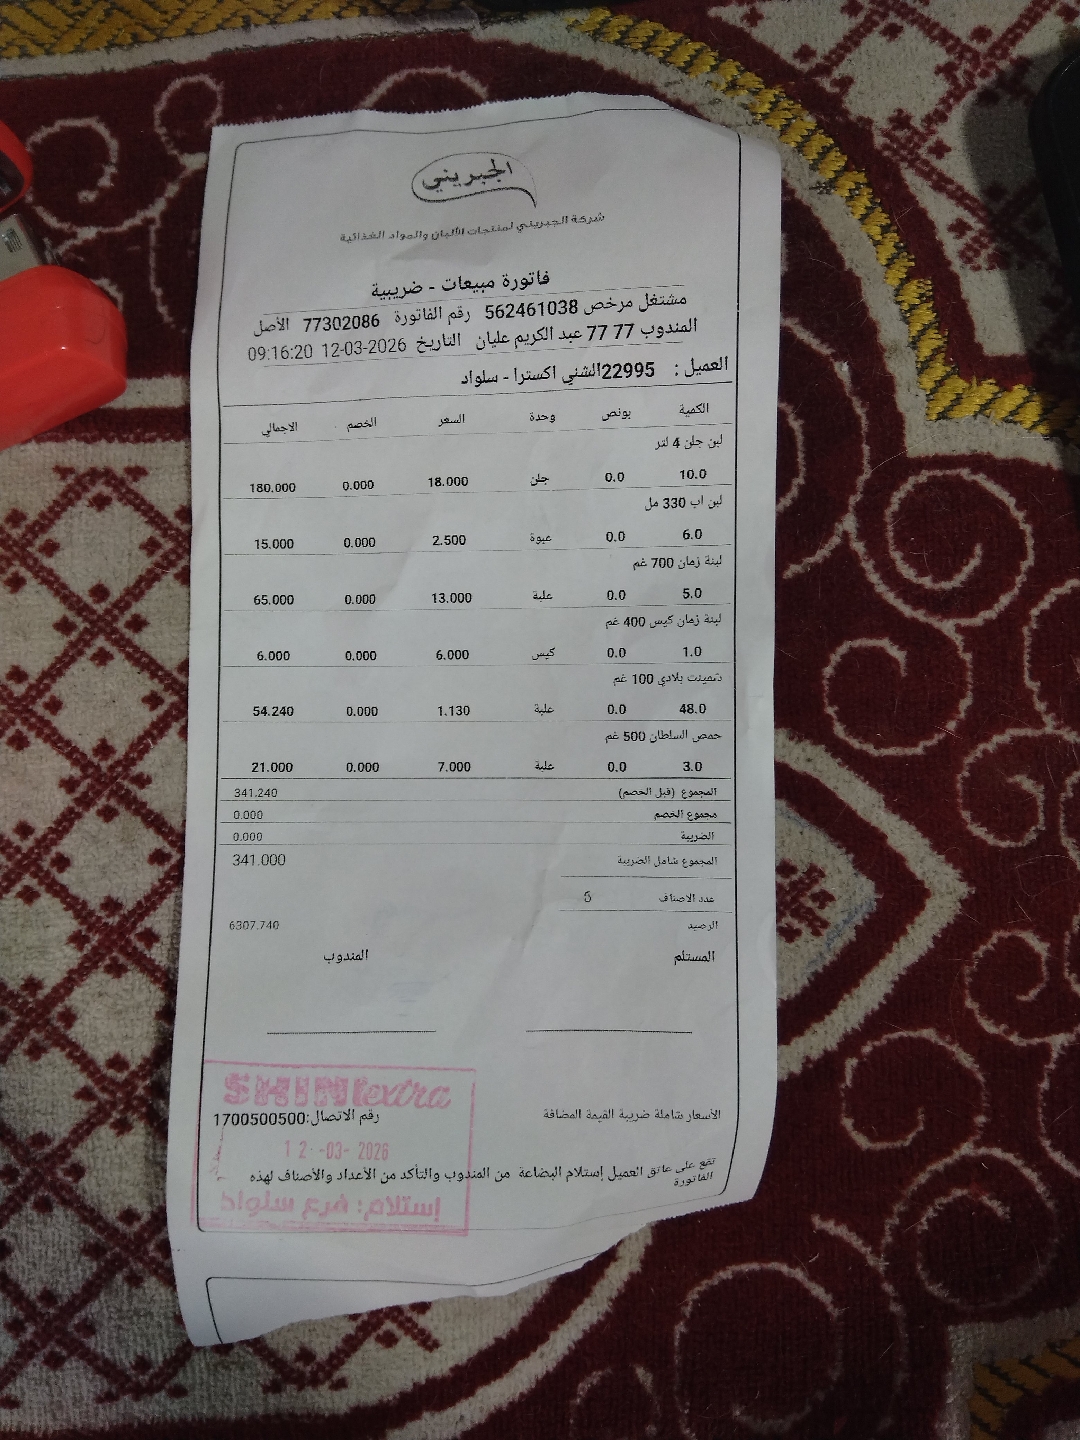 الجبريني
شركة الجبريني لمنتجات الألبان والمواد الغذائية
فاتورة مبيعات - ضريبية
مشتغل مرخص 562461038 رقم الفاتورة 77302086 الأصل
المندوب 77 77 عبد الكريم عليان التاريخ 12-03-2026 09:16:20
العميل : 22995الشني اكسترا - سلواد
الكمية بونص وحدة السعر الخصم الاجمالي
لبن جلن 4 لتر
10.0 0.0 جلن 18.000 0.000 180.000
لبن اب 330 مل
6.0 0.0 عبوة 2.500 0.000 15.000
لبنة زمان 700 غم
5.0 0.0 علبة 13.000 0.000 65.000
لبنة زمان كيس 400 غم
1.0 0.0 كيس 6.000 0.000 6.000
شمينت بلادي 100 غم
48.0 0.0 علبة 1.130 0.000 54.240
حمص السلطان 500 غم
3.0 0.0 علبة 7.000 0.000 21.000
المجموع (قبل الخصم) 341.240
مجموع الخصم 0.000
الضريبة 0.000
المجموع شامل الضريبة 341.000
عدد الاصناف 6
الرصيد 6307.740
المستلم المندوب
SHINI extra
الأسعار شاملة ضريبة القيمة المضافة رقم الاتصال:1700500500
12-03-2026
تقع على عاتق العميل إستلام البضاعة من المندوب والتأكد من الأعداد والأصناف لهذه
الفاتورة
إستلام: فرع سلواد